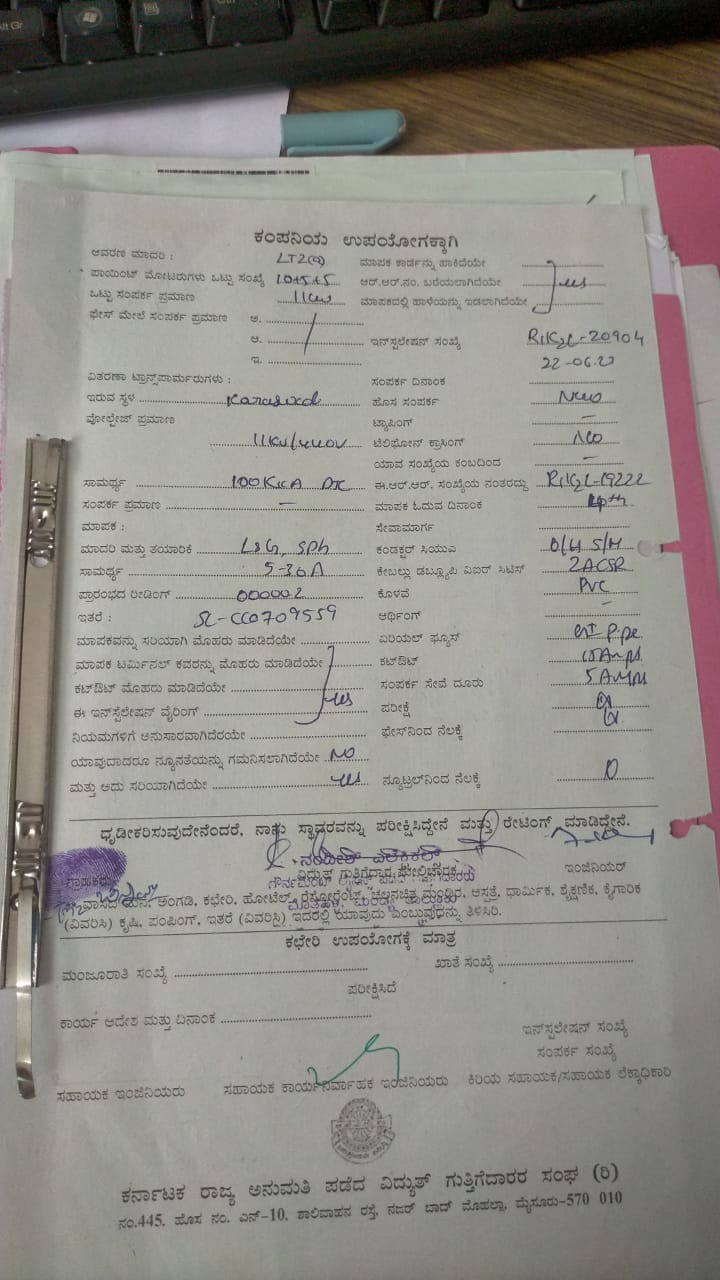 Alt Gr
ಕಂಪನಿಯ ಉಪಯೋಗಕ್ಕಾಗಿ
ಆವರಣ ಮಾದರಿ : LT2(a) ಮಾಪಕ ಕಾರ್ಡನ್ನು ಹಾಕಿದೆಯೇ
ಪಾಯಿಂಟ್ ಮೋಟರುಗಳು ಒಟ್ಟು ಸಂಖ್ಯೆ 10+5+5 ಆರ್.ಆರ್.ನಂ. ಬರೆಯಲಾಗಿದೆಯೇ yes
ಒಟ್ಟು ಸಂಪರ್ಕ ಪ್ರಮಾಣ 11kw ಮಾಪಕದಲ್ಲಿ ಹಾಳೆಯನ್ನು ಇಡಲಾಗಿದೆಯೇ
ಫೇಸ್ ಮೇಲೆ ಸಂಪರ್ಕ ಪ್ರಮಾಣ ಅ.
ಆ. ಇನ್‌ಸ್ಪಲೇಷನ್ ಸಂಖ್ಯೆ -20904
ಇ. 22-06-23
ವಿತರಣಾ ಟ್ರಾನ್ಸ್‌ಪಾರ್ಮರುಗಳು : ಸಂಪರ್ಕ ದಿನಾಂಕ
ಇರುವ ಸ್ಥಳ ಹೊಸ ಸಂಪರ್ಕ New
ವೋಲ್ಟೇಜ್ ಪ್ರಮಾಣ ಟ್ಯಾಪಿಂಗ್ –
11kv/440v ಟೆಲಿಫೋನ್ ಕ್ರಾಸಿಂಗ್ No
ಯಾವ ಸಂಖ್ಯೆಯ ಕಂಬದಿಂದ –
ಸಾಮರ್ಥ್ಯ 100KVA ಈ.ಆರ್.ಆರ್. ಸಂಖ್ಯೆಯ ನಂತರದ್ದು -19222
ಸಂಪರ್ಕ ಪ್ರಮಾಣ – ಮಾಪಕ ಓದುವ ದಿನಾಂಕ
ಮಾಪಕ : ಸೇವಾಮಾರ್ಗ
ಮಾದರಿ ಮತ್ತು ತಯಾರಿಕೆ L&G, SPh ಕಂಡಕ್ಟರ್ ಸಿಯುಎ O/H S/M
ಸಾಮರ್ಥ್ಯ 5-30A ಕೇಬಲ್ಲು ಡಬ್ಲ್ಯೂಪಿ ವಿಐರ್ ಸಿಟಿಸ್ 2ACSR
ಪ್ರಾರಂಭದ ರೀಡಿಂಗ್ 000002 ಕೊಳವೆ PVC
ಇತರೆ : SL-CC0709559 ಆರ್ಥಿಂಗ್ –
ಮಾಪಕವನ್ನು ಸರಿಯಾಗಿ ಮೊಹರು ಮಾಡಿದೆಯೇ ಏರಿಯಲ್ ಫ್ಯೂಸ್ GI pipe
ಮಾಪಕ ಟರ್ಮಿನಲ್ ಕವರನ್ನು ಮೊಹರು ಮಾಡಿದೆಯೇ ಕಟ್‌ಔಟ್ 15Amps
ಕಟ್‌ಔಟ್ ಮೊಹರು ಮಾಡಿದೆಯೇ ಸಂಪರ್ಕ ಸೇವೆ ದೂರು 5 Amps
ಈ ಇನ್‌ಸ್ಪೆಲೇಷನ್ ವೈರಿಂಗ್ yes ಪರೀಕ್ಷೆ
ನಿಯಮಗಳಿಗೆ ಅನುಸಾರವಾಗಿದೆರಯೇ ಫೇಸ್‌ನಿಂದ ನೆಲಕ್ಕೆ
ಯಾವುದಾದರೂ ನ್ಯೂನತೆಯನ್ನು ಗಮನಿಸಲಾಗಿದೆಯೇ No
ಮತ್ತು ಅದು ಸರಿಯಾಗಿದೆಯೇ yes ನ್ಯೂಟ್ರಲ್‌ನಿಂದ ನೆಲಕ್ಕೆ 0
ಧೃಡೀಕರಿಸುವುದೇನೆಂದರೆ, ನಾನು ಸ್ಥಾವರವನ್ನು ಪರೀಕ್ಷಿಸಿದ್ದೇನೆ ಮತ್ತು ರೇಟಿಂಗ್ ಮಾಡಿದ್ದೇನೆ.
ಗ್ರಾಹಕರು ವಿದ್ಯುತ್ ಗುತ್ತಿಗೆದಾರ ಇಂಜಿನಿಯರ್
ವಾಸದ ಮನೆ, ಅಂಗಡಿ, ಕಛೇರಿ, ಹೋಟೆಲ್, ರೆಸ್ಟೋರೆಂಟ್, ಚಲನಚಿತ್ರ ಮಂದಿರ, ಆಸ್ಪತ್ರೆ, ಧಾರ್ಮಿಕ, ಶೈಕ್ಷಣಿಕ, ಕೈಗಾರಿಕ
(ವಿವರಿಸಿ) ಕೃಷಿ, ಪಂಪಿಂಗ್, ಇತರೆ (ವಿವರಿಸಿ) ಇದರಲ್ಲಿ ಯಾವುದು ಎಂಬುವುದನ್ನು ತಿಳಿಸಿರಿ.
ಕಛೇರಿ ಉಪಯೋಗಕ್ಕೆ ಮಾತ್ರ
ಮಂಜೂರಾತಿ ಸಂಖ್ಯೆ ಖಾತೆ ಸಂಖ್ಯೆ
ಪರೀಕ್ಷಿಸಿದೆ
ಕಾರ್ಯ ಆದೇಶ ಮತ್ತು ದಿನಾಂಕ
ಇನ್‌ಸ್ಪಲೇಷನ್ ಸಂಖ್ಯೆ
ಸಂಪರ್ಕ ಸಂಖ್ಯೆ
ಸಹಾಯಕ ಇಂಜಿನಿಯರು ಸಹಾಯಕ ಕಾರ್ಯನಿರ್ವಾಹಕ ಇಂಜಿನಿಯರು ಕಿರಿಯ ಸಹಾಯಕ/ಸಹಾಯಕ ಲೆಕ್ಕಾಧಿಕಾರಿ
ಕರ್ನಾಟಕ ರಾಜ್ಯ ಅನುಮತಿ ಪಡೆದ ವಿದ್ಯುತ್ ಗುತ್ತಿಗೆದಾರರ ಸಂಘ (ರಿ)
ನಂ.445, ಹೊಸ ನಂ. ಎನ್-10, ಶಾಲಿವಾಹನ ರಸ್ತೆ, ನಜರ್ ಬಾದ್ ಮೊಹಲ್ಲಾ, ಮೈಸೂರು-570 010